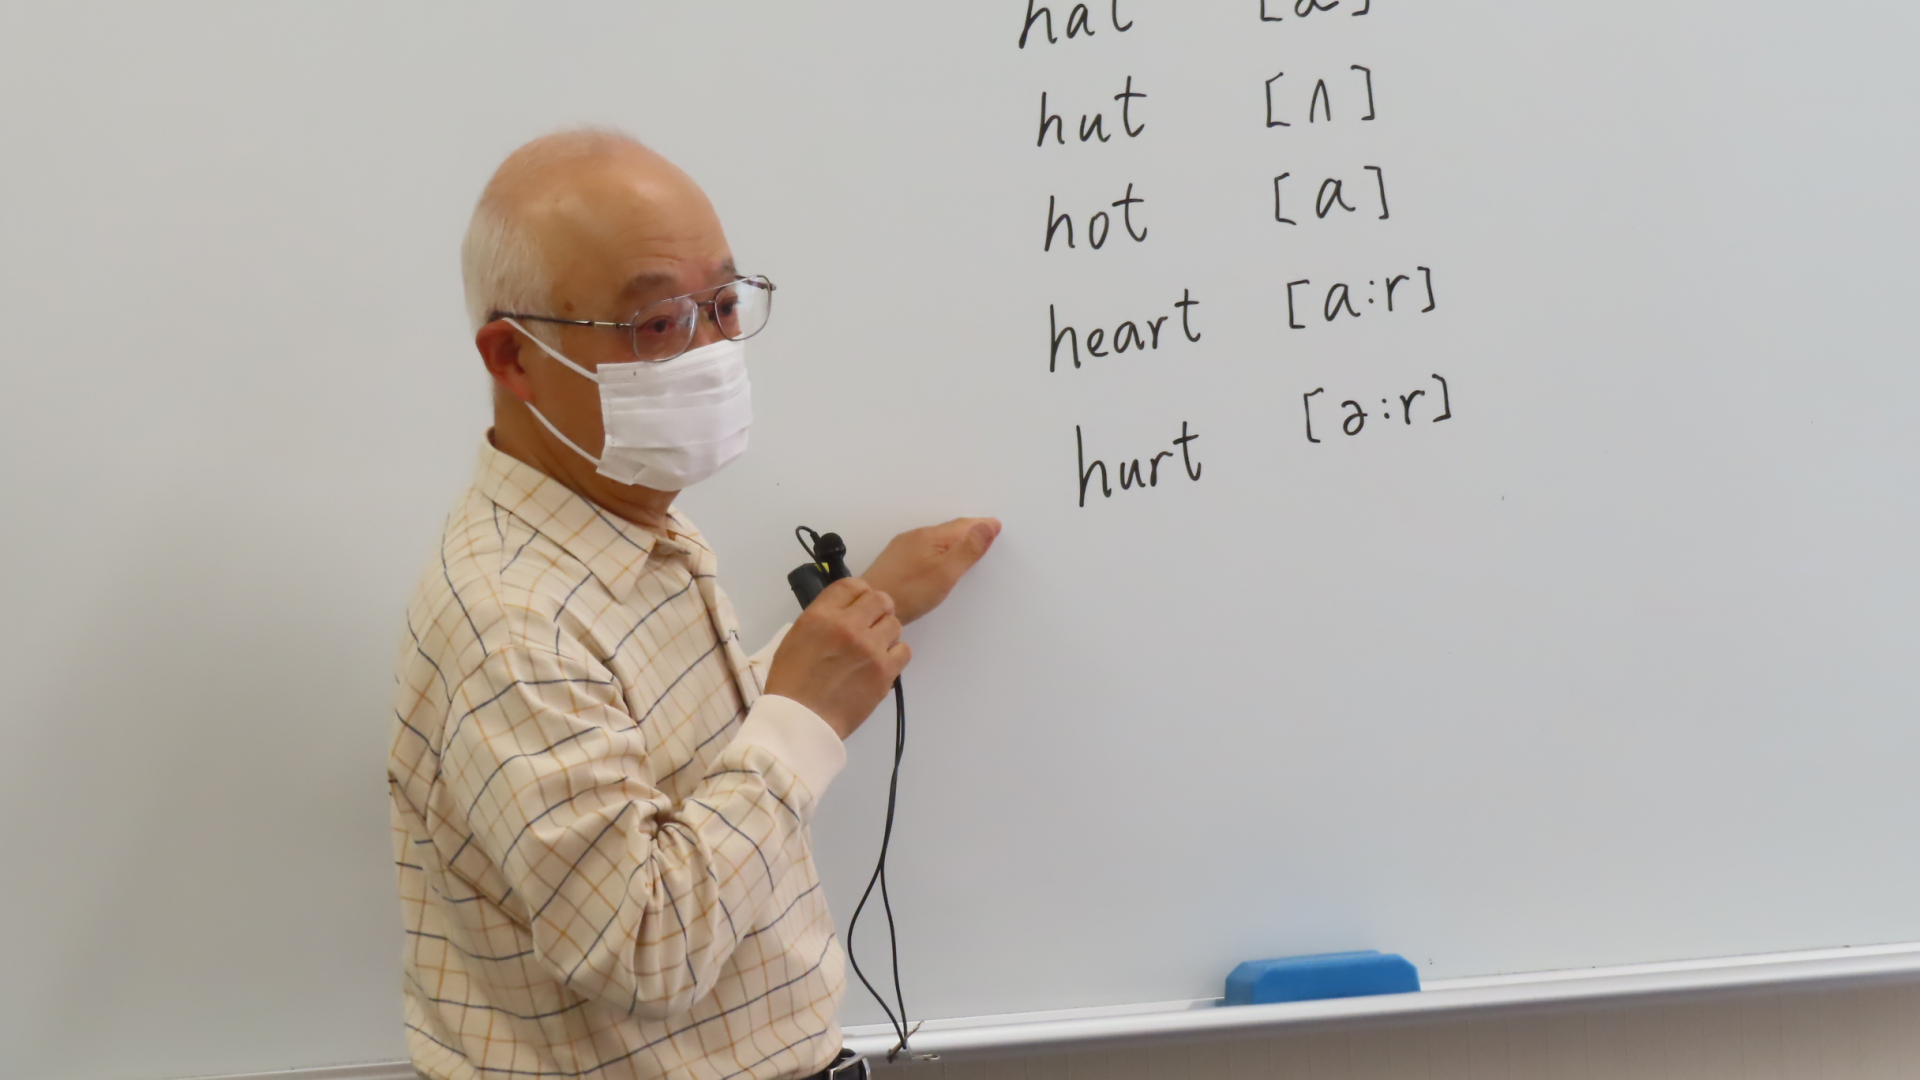 hat
hut [ʌ]
hot [ɑ]
heart [ɑ:r]
hurt [ə:r]